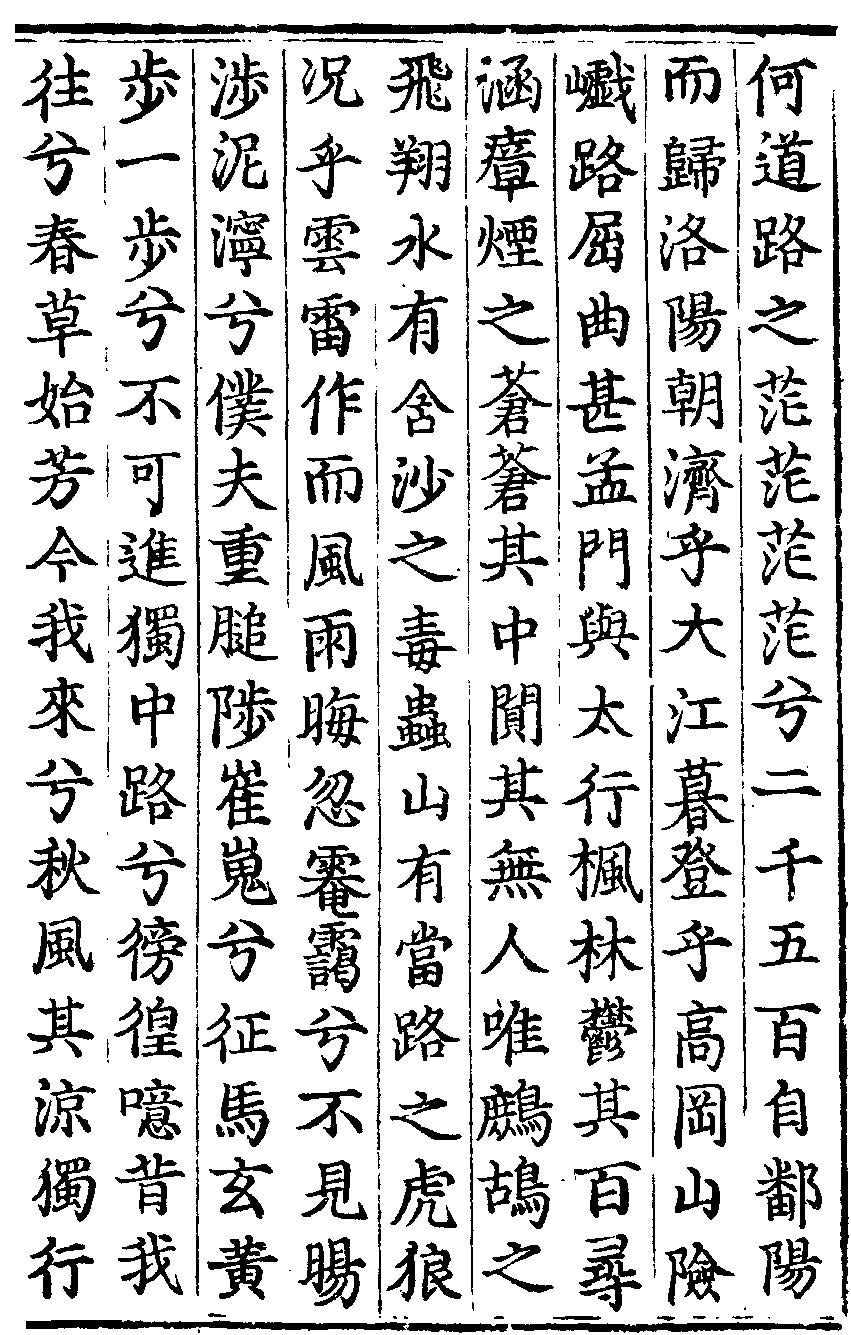 何道路之茫茫茫茫兮二千五百自鄱陽
而歸洛陽朝濟乎大江暮登乎高岡山險
巇路屈曲甚孟門與太行楓林鬱其百尋
涵瘴煙之蒼蒼其中閴其無人唯鷓鴣之
飛翔水有含沙之毒蟲山有當路之虎狼
况乎雲雷作而風雨晦忽䨄靄兮不見暘
涉泥濘兮僕夫重膇陟崔嵬兮征馬玄黃
步一步兮不可進獨中路兮徬徨噫昔我
徃兮春草始芳今我來兮秋風其涼獨行